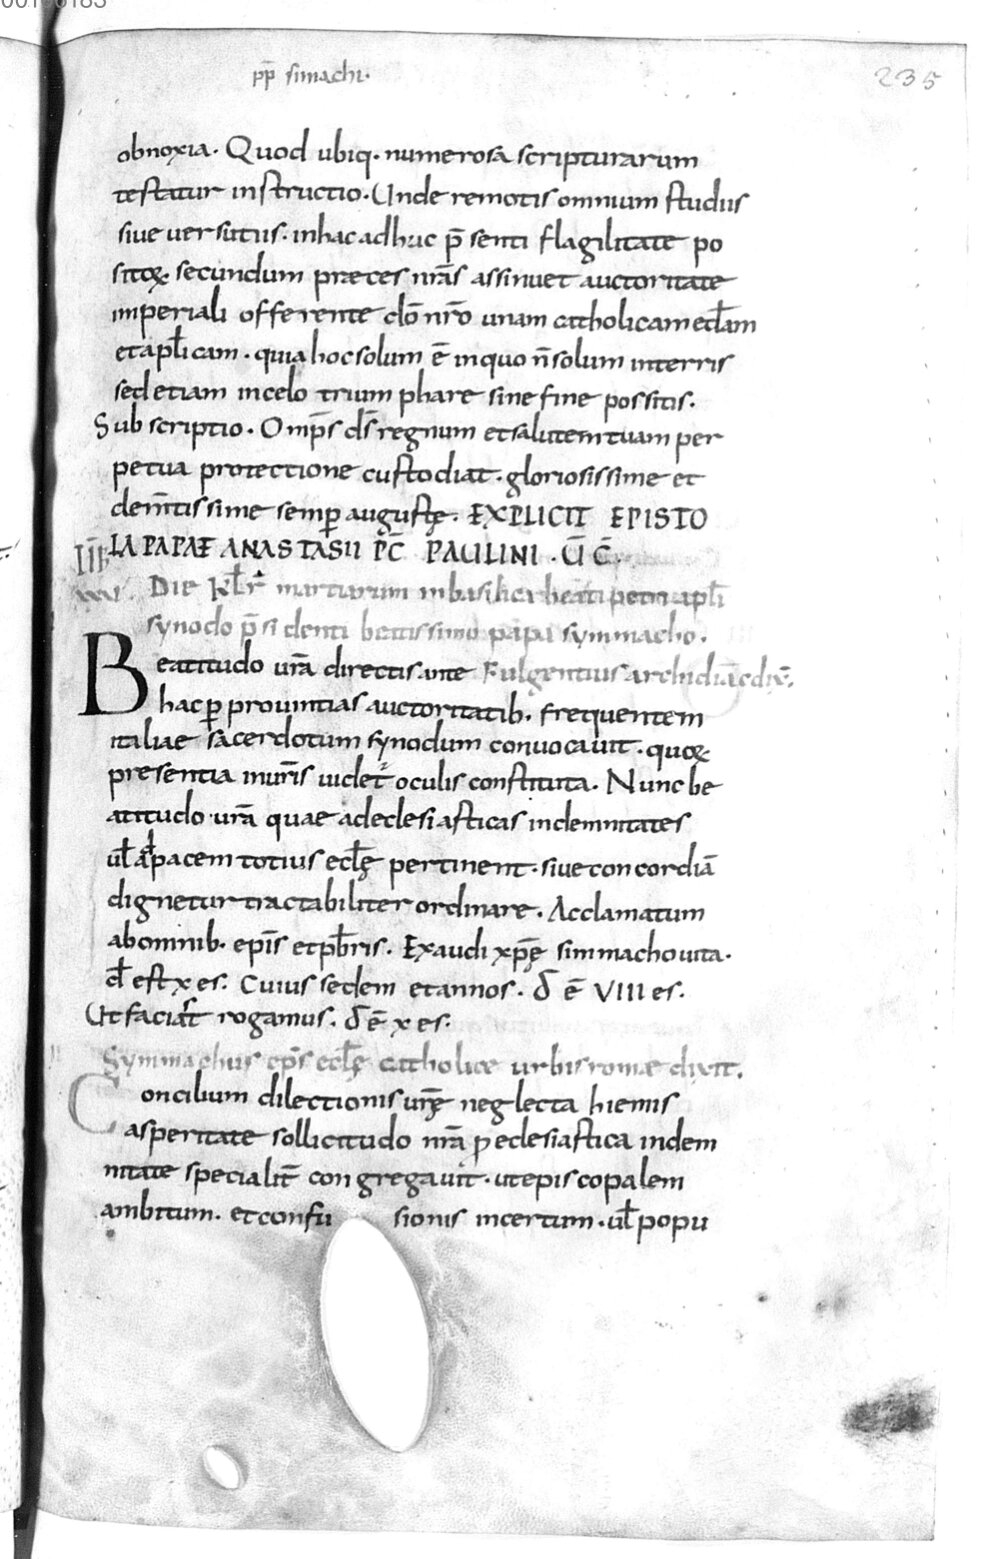 pp̄ simachi.
235
obnoxia. Quod ubiq. numerosa scripturarum
testatur instructio. Unde remotis omnium studiis
siue uersutiis. inhac adhuc p̄senti flagilitate po
sitoꝝ. secundum præces nr̄as assinuet auctoritate
imperiali offerente dō nr̄o unam catholicam eccl̄am
et apl̄icam. quia hoc solum ē in quo n̄ solum interris
sed etiam in celo triumphare sine fine possitis.
Sub scriptio. Omp̄s ds̄ regnum et salutem tuam per
petua protectione custodiat. gloriosissime et
clem̄tissime semꝑ auguste. EXPLICIT EPISTO
LA PAPAE ANASTASII P̄C̄ PAULINI. Ū C̄
Die kl̄r̄ martiarum in basilica beati petri apl̄i
synodo p̄sidenti beatissimo papa symmacho.
Beatitudo ur̄a directis ante Fulgentius archidiac̄ dix̄.
hac ꝑ prouintias auctoritatib. frequentem
italiae sacerdotum synodum conuocauit. quoꝝ
presentia in ur̄is uidet̄ oculis constituta. Nunc be
atitudo ur̄a quae ad eclesiasticas indemnitates
ul̄ ad pacem totius eccl̄ę pertinent. siue concordiā
dignetur tractabiliter ordinare. Acclamatum
ab omnib. epīs et pb̄ris. Exaudi xp̄ę simmacho uita.
dc̄ est x es. Cuius sedem et annos. d̄ ē VIII es.
Ut facias rogamus. d̄ ē x es.
Symmachus ep̄s eccl̄ę catholice urbis romæ dixit.
Concilium dilectionis ur̄ę neglecta hiemis
asperitate sollicitudo nr̄a ꝓ eclesiastica indem
nitate specialit̄ congregauit. ut episcopalem
ambitum. et confu sionis incertum. ul̄ popu